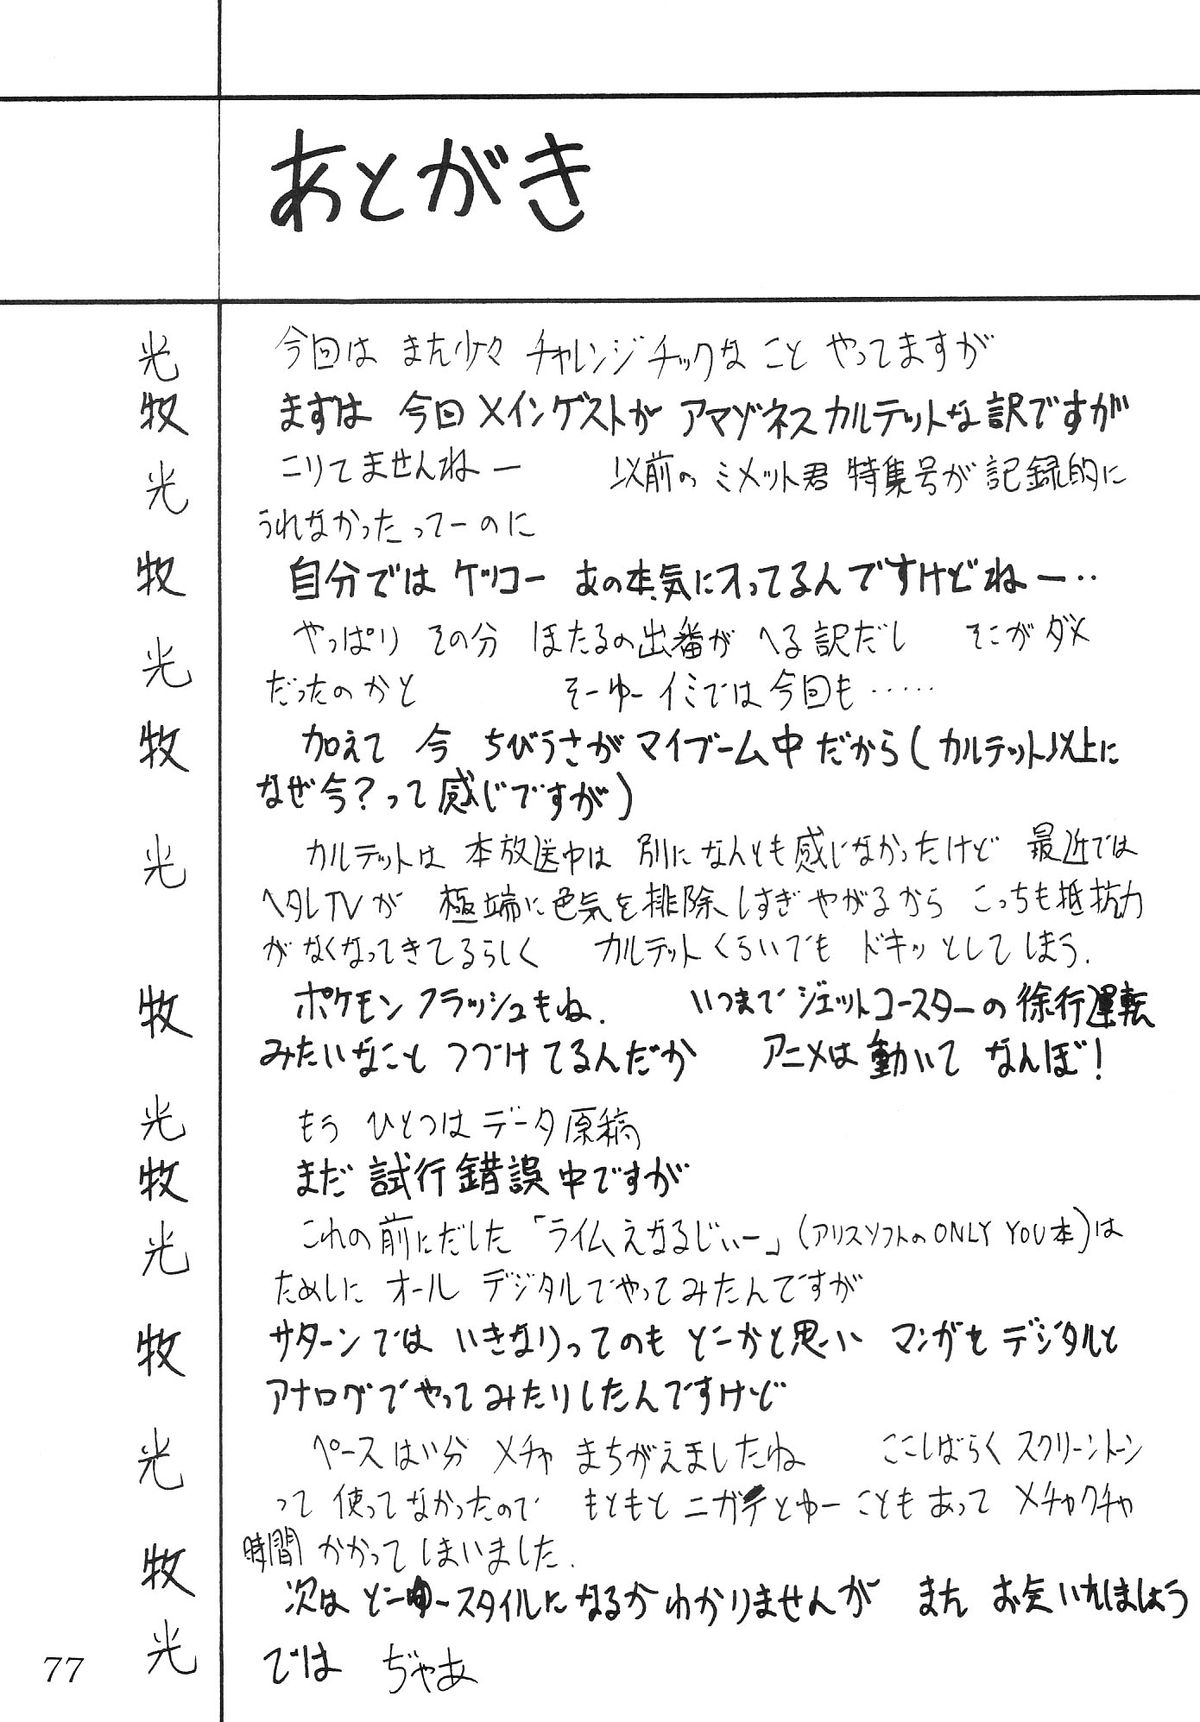 あとがき
光 今回は また少々 チャレンジチックな こと やってますが
牧 まずは 今回メインゲストが アマゾネスカルテットな訳ですが
光 ニリてませんねー 以前の ミメット君 特集号が 記録的に
うれなかったってーのに
牧 自分では ケッコー あの本気に入ってるんですけどねー‥
光 やっぱり その分 ほたるの出番が へる訳だし そこがダメ
だったのかと そーゆーイミでは今回も……
牧 加えて 今 ちびうさがマイブーム中だから(カルテット以上に
なぜ今?って感じですが)
光 カルテットは 本放送中は 別になんとも感じなかったけど 最近では
ヘタレTVが 極端に色気を排除しすぎやがるから こっちも抵抗力
がなくなってきてるらしく カルテットくらいでも ドキッとしてしまう.
牧 ポケモンフラッシュもね. いつまでジェットコースターの徐行運転
みたいなこと つづけてるんだか アニメは動いて なんぼ!
光 もう ひとつは データ原稿
牧 まだ 試行錯誤中ですが
光 これの前にだした「ライムえなるじぃー」(アリスソフトのONLY YOU本)は
ためしに オール デジタルでやってみたんですが
牧 サターンでは いきなりってのも どーかと思い マンガをデジタルと
アナログでやってみたりしたんですけど
光 ペースはい分 メチャ まちがえましたね ここしばらく スクリーントーン
って 使ってなかったので もともと ニガテとゆーこともあって メチャクチャ
時間 かかってしまいました.
牧 次は どーゆースタイルになるかわかりませんが また お会いしましょう
光 では ぢゃあ
77